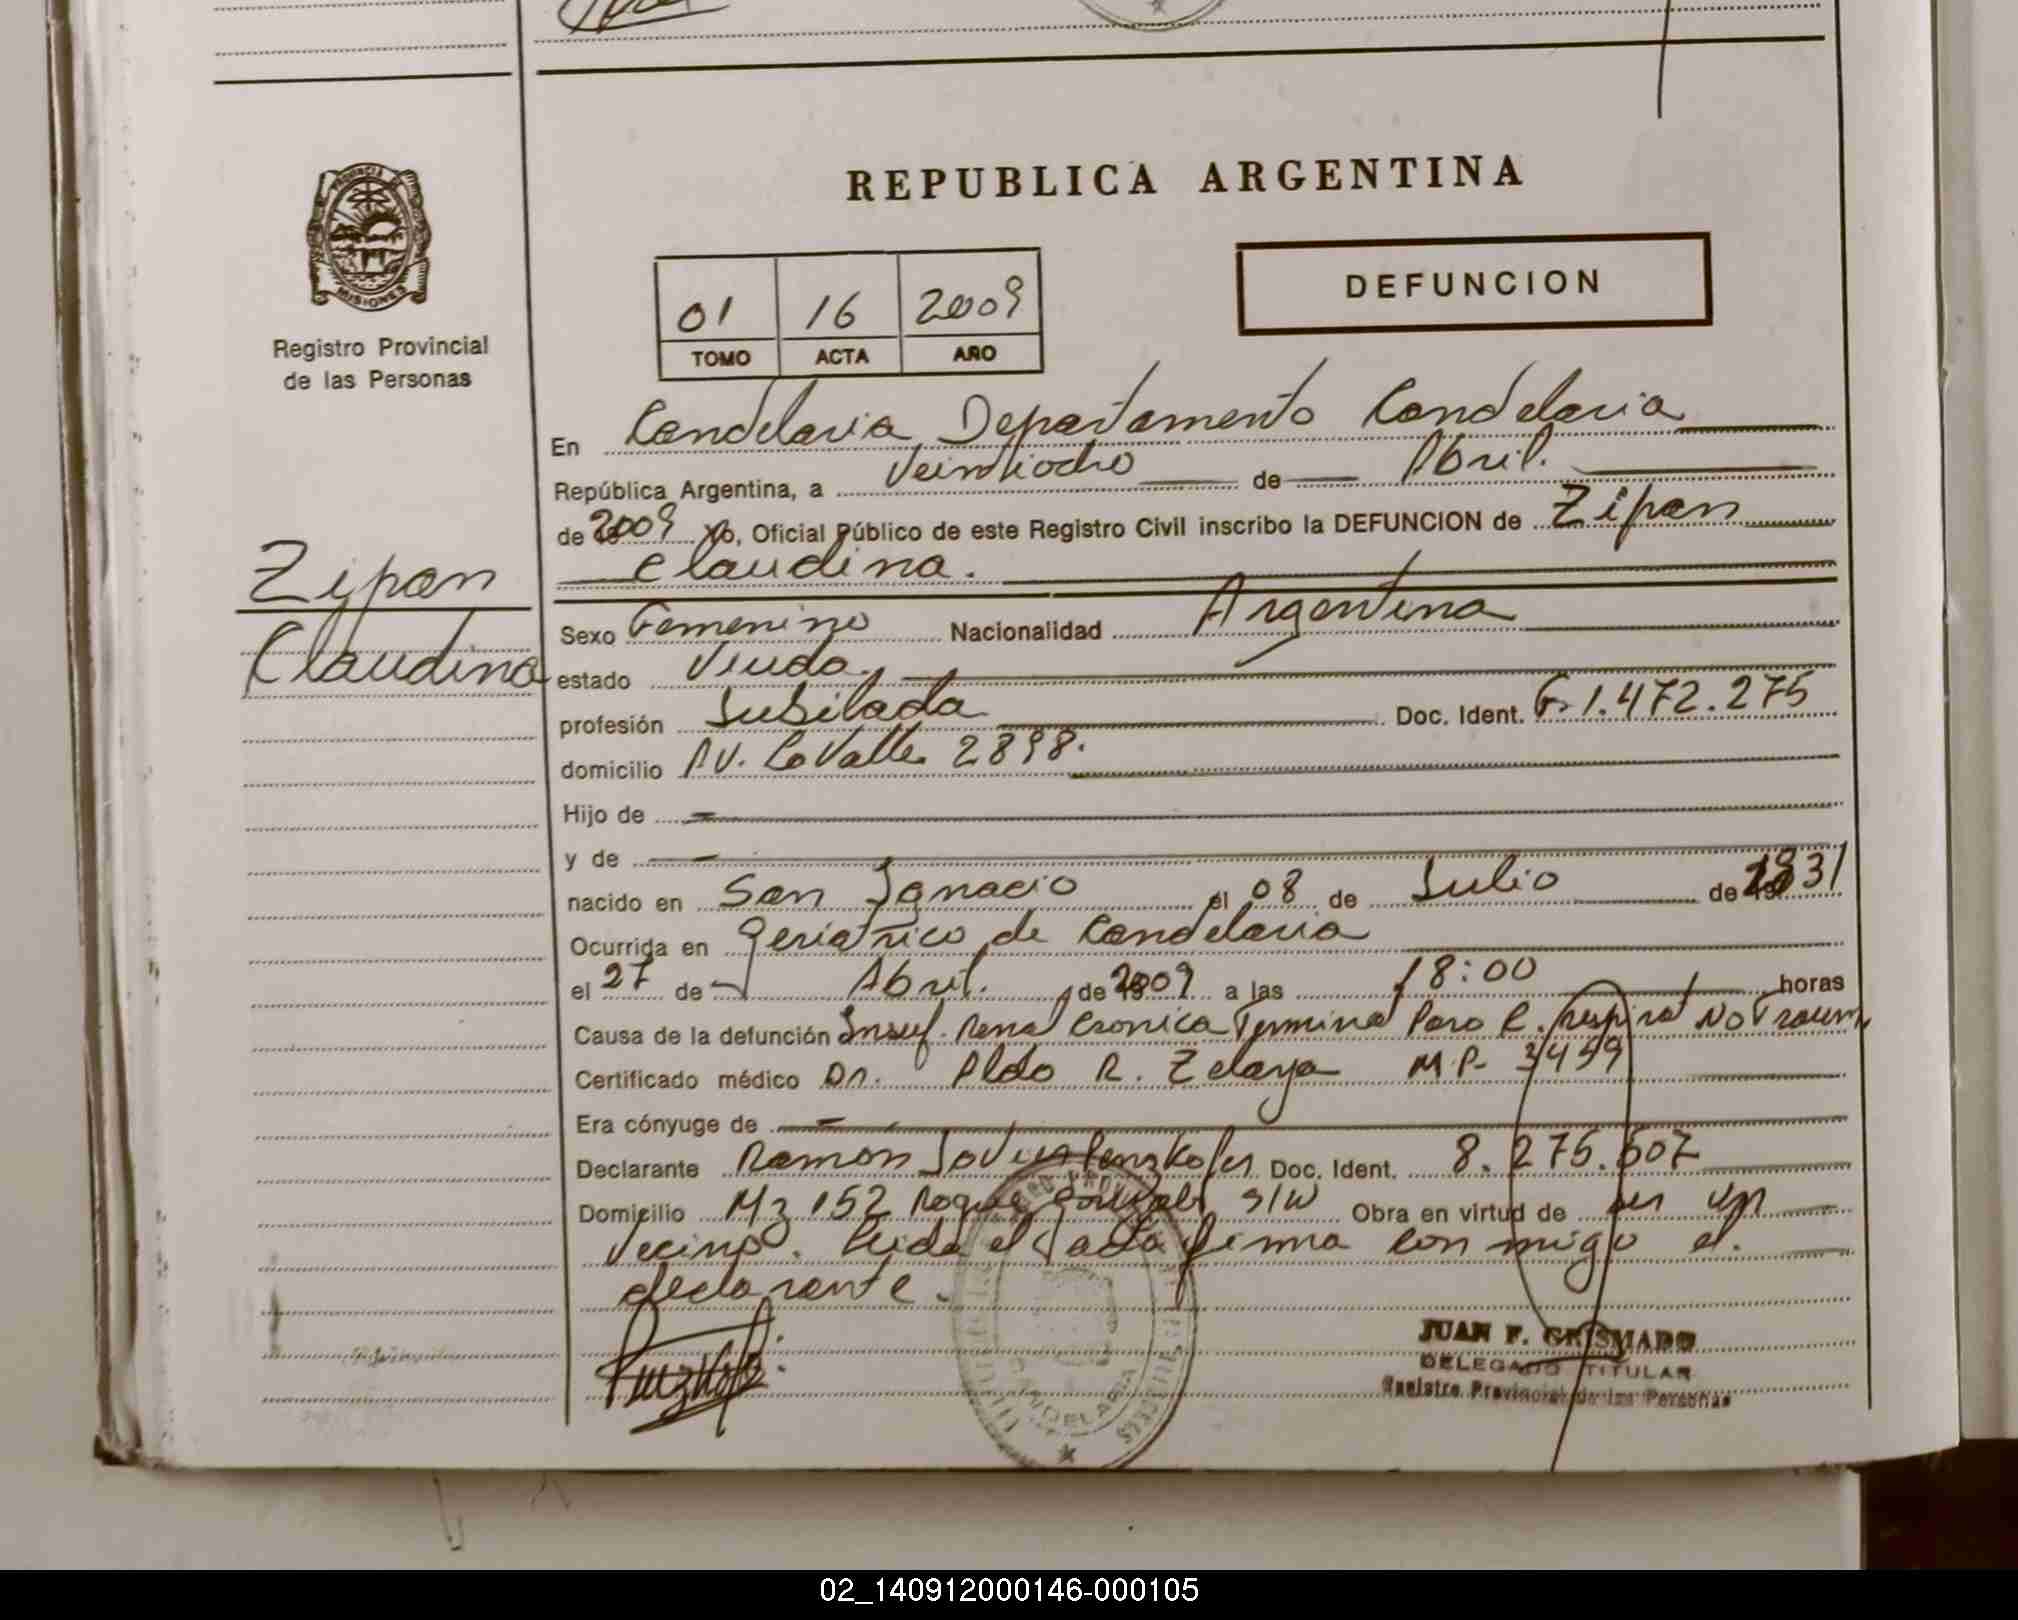 PROVINCIA DE
MISIONES
Registro Provincial
de las Personas
Zipan
Claudina
REPUBLICA ARGENTINA
01 16 2009
TOMO ACTA AÑO
DEFUNCION
En Candelaria Departamento Candelaria
República Argentina, a Veintiocho de Abril.
de 2009 Yo, Oficial Público de este Registro Civil inscribo la DEFUNCION de Zipan
Claudina.
Sexo Femenino Nacionalidad Argentina
estado Viuda.
profesión Jubilada Doc. Ident. F. 1.472.275
domicilio AV. Lavalle 2898.
Hijo de
y de
nacido en San Ignacio el 08 de Julio de 1931
Ocurrida en geriatrico de Candelaria
el 27 de Abril. de 2009 a las 18:00 horas
Causa de la defunción Insuf. Renal Cronica Terminal Paro C. respirat No Traum.
Certificado médico Dr. Aldo R. Zelaya M.P. 3459
Era cónyuge de
Declarante Ramon Doc. Ident. 8.275.507
Domicilio Mz 152 Roque Gonzalez S/N Obra en virtud de ser un
Vecino. Leida el acta firma con migo el.
declarante.
JUAN F. GRISMADO
DELEGADO TITULAR
Registro Provincial de las Personas
CANDELARIA
02_140912000146-000105